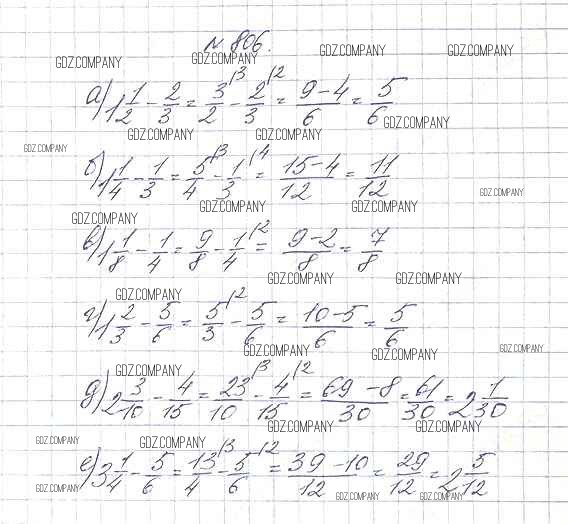 № 806.
GDZ.COMPANY GDZ.COMPANY GDZ.COMPANY GDZ.COMPANY
а) 1 1/2 - 2/3 = 3/2 |3 - 2/3 |2 = (9-4)/6 = 5/6
GDZ.COMPANY
GDZ.COMPANY GDZ.COMPANY
GDZ.COMPANY
б) 1 1/4 - 1/3 = 5/4 |3 - 1/3 |4 = (15-4)/12 = 11/12
GDZ.COMPANY
GDZ.COMPANY GDZ.COMPANY
GDZ.COMPANY
в) 1 1/8 - 1/4 = 9/8 - 1/4 |2 = (9-2)/8 = 7/8
GDZ.COMPANY GDZ.COMPANY
GDZ.COMPANY
г) 1 2/3 - 5/6 = 5/3 |2 - 5/6 = (10-5)/6 = 5/6
GDZ.COMPANY GDZ.COMPANY GDZ.COMPANY
GDZ.COMPANY
д) 2 3/10 - 4/15 = 23/10 |3 - 4/15 |2 = (69-8)/30 = 61/30 = 2 1/30
GDZ.COMPANY GDZ.COMPANY
GDZ.COMPANY GDZ.COMPANY
е) 3 1/4 - 5/6 = 13/4 |3 - 5/6 |2 = (39-10)/12 = 29/12 = 2 5/12
GDZ.COMPANY GDZ.COMPANY GDZ.COMPANY